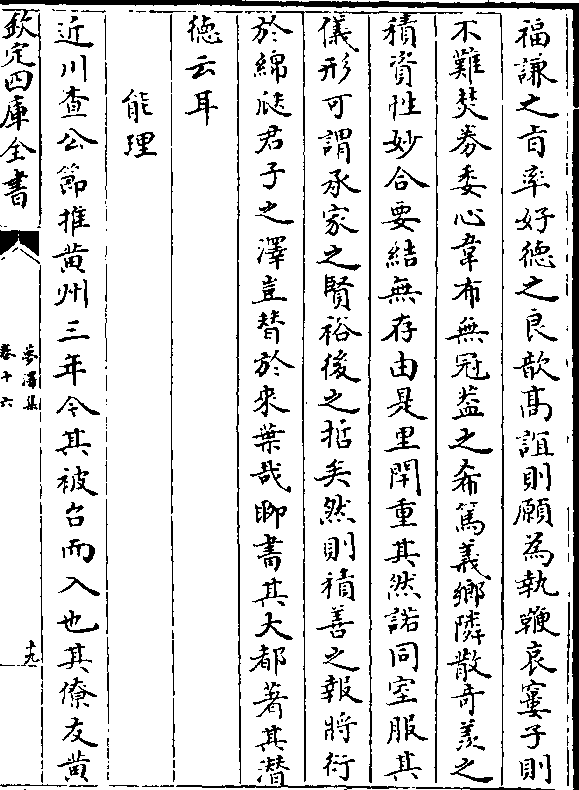 福謙之旨率好德之良歆高誼則願為執鞭哀窶子則
不難焚券委心韋布無冠葢之希篤義鄉隣散奇羨之
積資性妙合要結無存由是里閈重其然諾同室服其
儀形可謂承家之賢裕後之哲矣然則積善之報將衍
於綿瓞君子之澤豈替於來葉哉聊書其大都著其潛
德云耳
能理
近川查公節推黄州三年今其被召而入也其僚友黄
欽定四庫全書
夢澤集
卷十六
十九